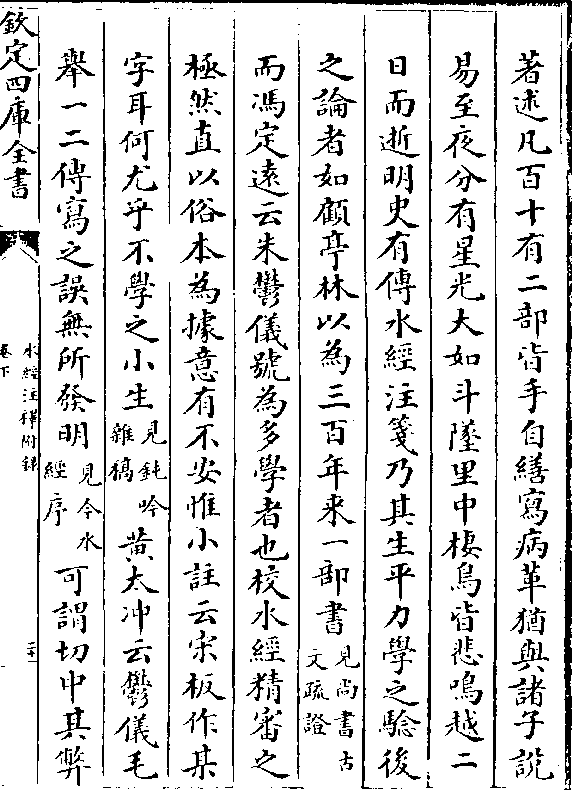 著述凡百十有二部皆手自繕寫病革猶與諸子說
易至夜分有星光大如斗墜里中棲鳥皆悲鳴越二
日而逝明史有傳水經注箋乃其生平力學之驗後
之論者如顧亭林以為三百年来一部書見尚書古文疏證
而馮定遠云朱鬱儀號為多學者也校水經精審之
極然直以俗本為據意有不安惟小註云宋板作某
字耳何尤乎不學之小生見鈍吟雜稿黄太冲云鬱儀毛
舉一二傳寫之誤無所發明見今水經序可謂切中其弊
欽定四庫全書
水經注釋附録
卷下